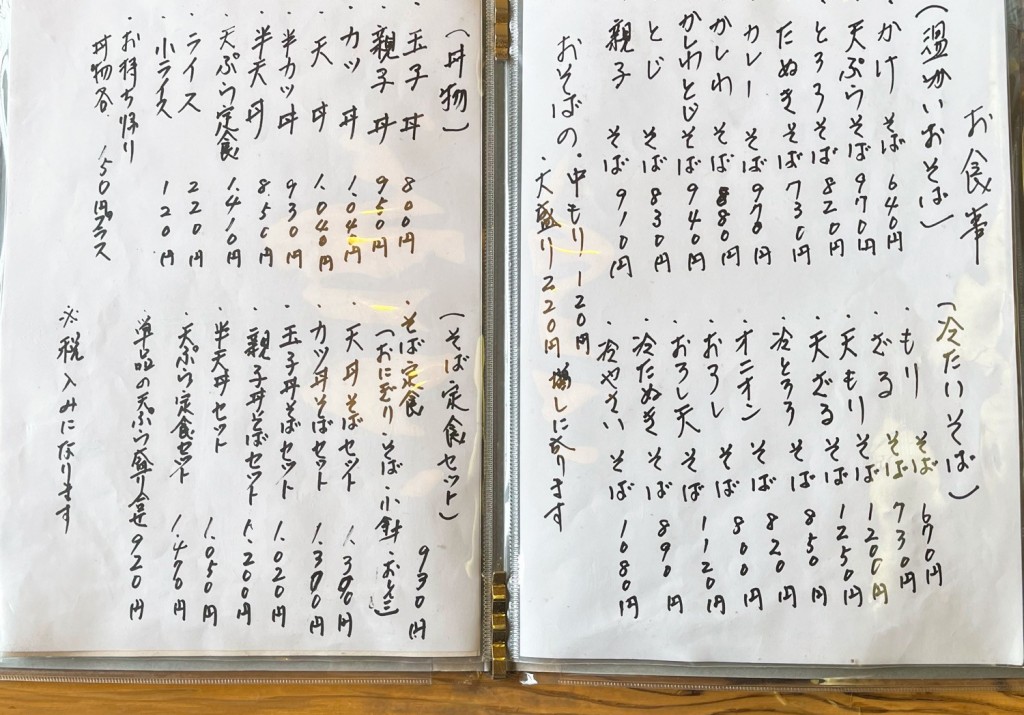 お食事
（温かいおそば）
・かけそば 640円
・天ぷらそば 970円
・とろろそば 820円
・たぬきそば 730円
・カレーそば 970円
・かしわそば 880円
・かしわとじそば 940円
・とじそば 830円
・親子そば 910円
（冷たいそば）
・もりそば 670円
・ざるそば 730円
・天もりそば 1200円
・天ざるそば 1250円
・冷とろろそば 850円
・オニオンそば 820円
・おろしそば 800円
・おろし天そば 1120円
・冷たぬきそば 890円
・冷やさいそば 1080円
おそばの・中もり 120円
・大盛り 220円 増しになります
（丼物）
・玉子丼 800円
・親子丼 950円
・カツ丼 1.040円
・天丼 1.040円
・半カツ丼 930円
・半天丼 850円
・天ぷら定食 1.410円
・ライス 220円
・小ライス 120円
・お持ち帰り
丼物各 150円プラス
（そば定食セット）
・そば定食 930円
（おにぎり・そば・小鉢・おしんこ）
・天丼そばセット 1.300円
・カツ丼そばセット 1.300円
・玉子丼そばセット 1.020円
・親子丼そばセット 1.200円
・半天丼セット 1.050円
・天ぷら定食セット 1.470円
単品の天ぷら盛り合せ 920円
※税込みになります